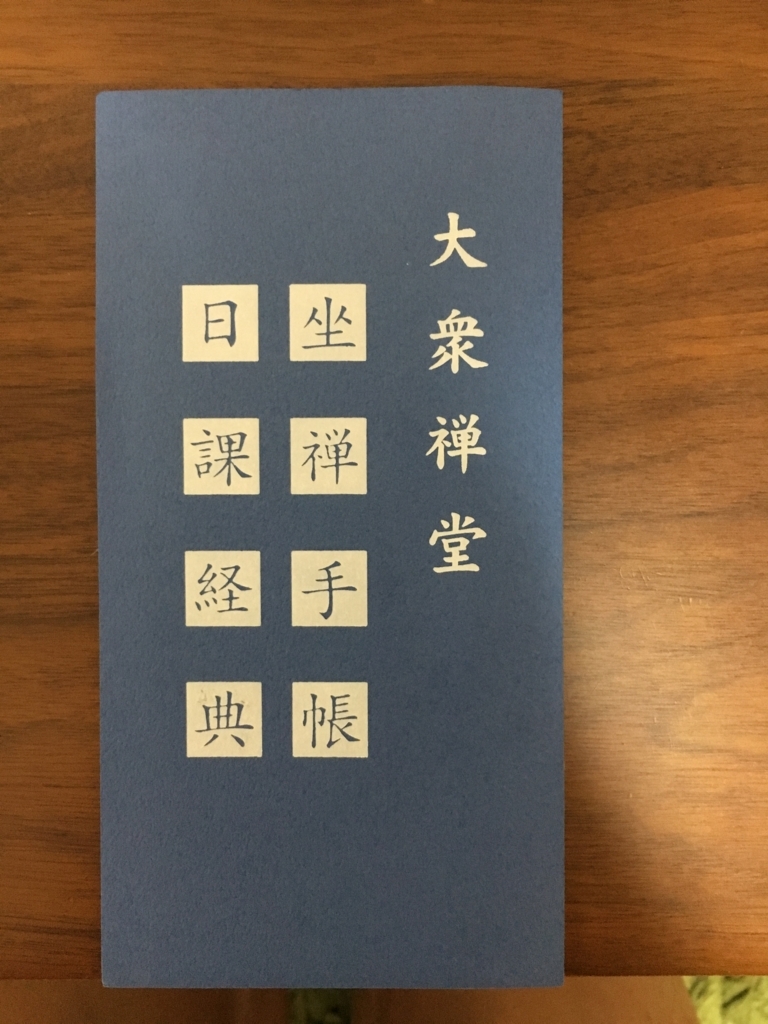 大衆禅堂
坐禅手帳
日課経典